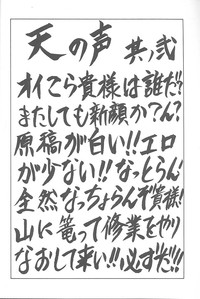 天の声 其ノ弐
オイこら貴様は誰だ!?
またしても新顔か?ん?
原稿が白い!!エロ
が少ない!!なっとらん
全然なっちょらんぞ貴様!
山に篭って修業をやり
なおして来い!!必ずだ!!!